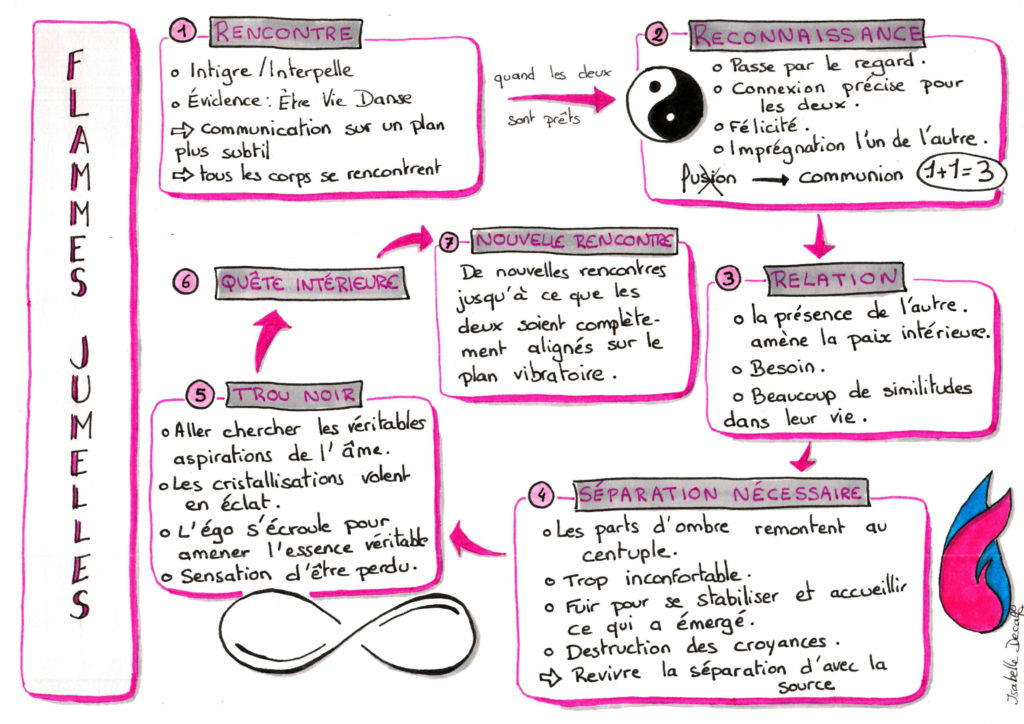 FLAMMES JUMELLES
1 RENCONTRE
o Intigre / Interpelle
o Évidence : Être Vie Danse
⇨ communication sur un plan
plus subtil
⇨ tous les corps se rencontrent
quand les deux
sont prêts
2 RECONNAISSANCE
o Passe par le regard.
o Connexion précise pour
les deux.
o Félicité.
o Imprégnation l'un de l'autre.
fusion → communion 1+1=3
3 RELATION
o la présence de l'autre.
amène la paix intérieure.
o Besoin.
o Beaucoup de similitudes
dans leur vie.
4 SÉPARATION NÉCESSAIRE
o Les parts d'ombre remontent au
centuple.
o Trop inconfortable.
o Fuir pour se stabiliser et accueillir
ce qui a émergé.
o Destruction des croyances.
⇨ Revivre la séparation d'avec la
source
5 TROU NOIR
o Aller chercher les véritables
aspirations de l'âme.
o Les cristallisations volent
en éclat.
o L'égo s'écroule pour
amener l'essence véritable
o Sensation d'être perdu.
6 QUÊTE INTÉRIEURE
7 NOUVELLE RENCONTRE
De nouvelles rencontres
jusqu'à ce que les
deux soient complète-
ment alignés sur le
plan vibratoire.
Isabelle